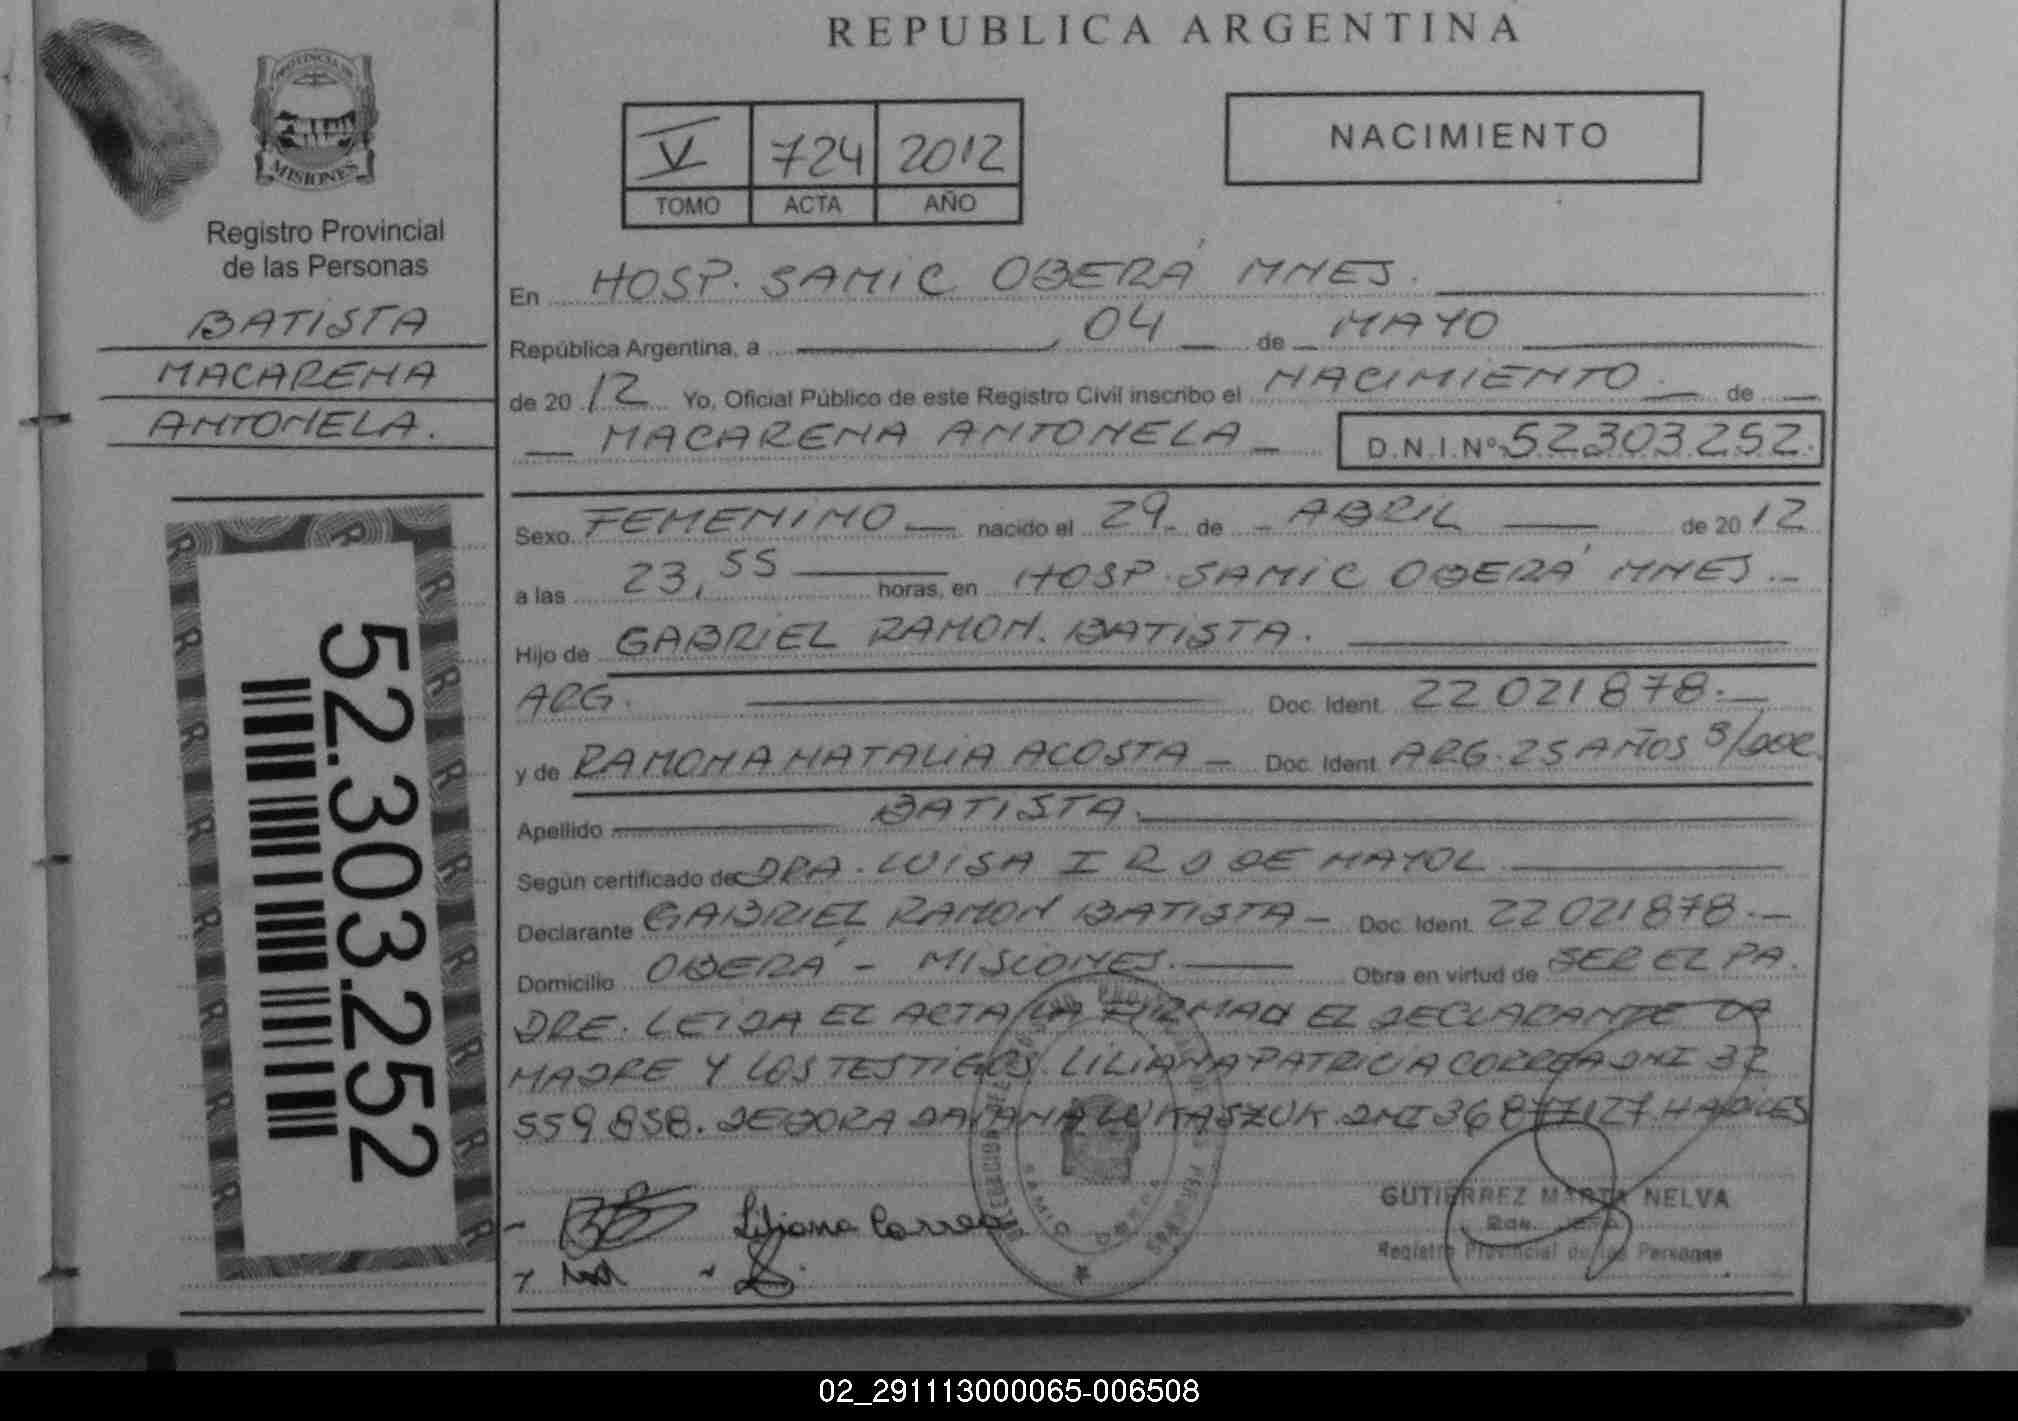 REPUBLICA ARGENTINA
PROVINCIA DE
MISIONES
Registro Provincial
de las Personas
BATISTA
MACARENA
ANTONELA.
52.303.252
V 724 2012
TOMO ACTA AÑO
NACIMIENTO
En HOSP. SAMIC OBERÁ MNES.
República Argentina, a 04 de MAYO
de 2012 Yo, Oficial Público de este Registro Civil inscribo el NACIMIENTO de
MACARENA ANTONELA D.N.I.Nº 52303252.
Sexo FEMENINO nacido el 29 de ABRIL de 2012
a las 23,55 horas, en HOSP. SAMIC OBERÁ MNES.
Hijo de GABRIEL RAMON. BATISTA.
ARG. Doc. Ident. 22021878.
y de RAMONA NATALIA ACOSTA Doc. Ident. ARG. 25 AÑOS S/DOC.
Apellido BATISTA.
Según certificado de DRA. LUISA I R D DE MAYOL
Declarante GABRIEL RAMON BATISTA Doc. Ident. 22021878.
Domicilio OBERÁ - MISIONES. Obra en virtud de SER EL PA.
DRE. LEIDA EL ACTA LA FIRMAN EL DECLARANTE LA
MADRE Y LOS TESTIGOS. LILIANA PATRICIA CORREA DNI 32
559858. DEBORA DAIANA LUKASZUK. DNI 36877127. HABILES
Liliana Correa
GUTIERREZ MARTA NELVA
Registro Provincial de las Personas
02_291113000065-006508